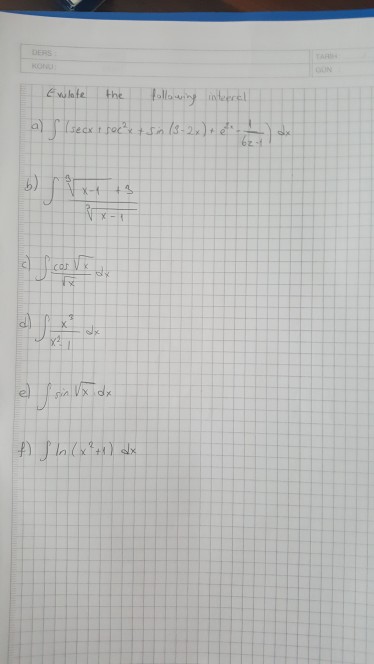 DERS
KONU
TARİH
GÜN
Evaluate the following integral
a) ∫ (secx + sec²x + sin(3-2x) + e²ˣ - 1/(6x-1)) dx
b) ∫ (∛(x-1) + 3)/∛(x-1)
c) ∫ cos√x/√x dx
d) ∫ x³/(x²-1) dx
e) ∫ sin √x dx
f) ∫ ln(x²+1) dx